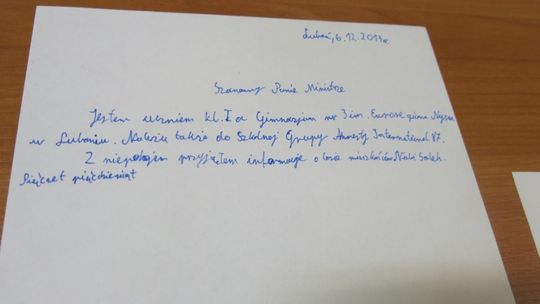 Lubań, 6.12.2013r.
Szanowny Panie Ministrze
Jestem uczniem kl. I a Gimnazjum nr 3 im. Euroregionu Nysa
w Lubaniu. Należę także do Szkolnej Grupy Amnesty International 87.
Z niepokojem przyjąłem informacje o losie mieszkańców Nabi Saleh.
Pięćset pięćdziesiąt